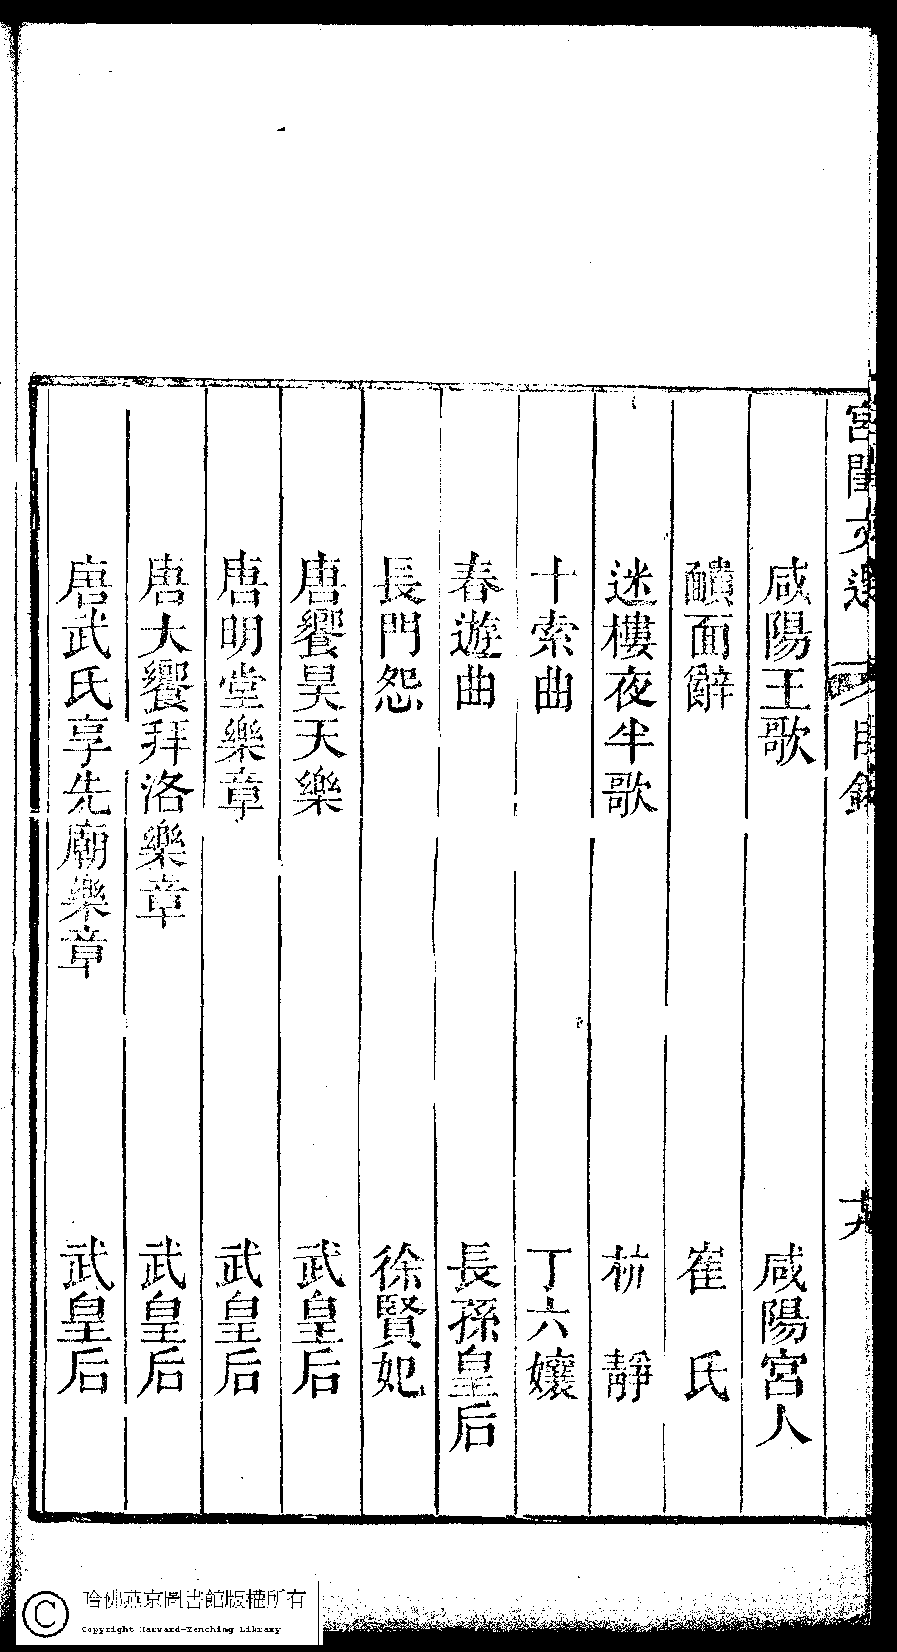 宮閨文選 目錄 十九
咸陽王歌 咸陽宮人
靧面辭 崔 氏
迷樓夜半歌 杭 靜
十索曲 丁六孃
春遊曲 長孫皇后
長門怨 徐賢妃
唐饗昊天樂 武皇后
唐明堂樂章 武皇后
唐大饗拜洛樂章 武皇后
唐武氏享先廟樂章 武皇后
哈佛燕京圖書館版權所有
Copyright Harvard-Yenching Library